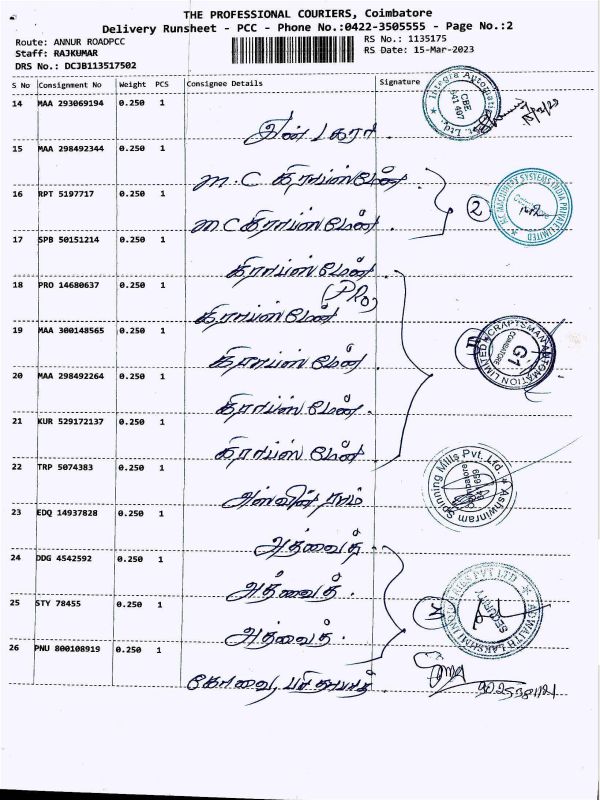 THE PROFESSIONAL COURIERS, Coimbatore
Delivery Runsheet - PCC - Phone No.:0422-3505555 - Page No.:2
Route: ANNUR ROADPCC
Staff: RAJKUMAR
DRS No.: DCJB113517502
RS No.: 1135175
RS Date: 15-Mar-2023
S No Consignment No Weight PCS Consignee Details Signature
14 MAA 293069194 0.250 1
Integra Automation
CBE
641 407
15 MAA 298492344 0.250 1
M.C கிராப்ஸ் மேன்
16 RPT 5197717 0.250 1
MC கிராப்ஸ் மேன்.
2
MACHINERY SYSTEMS INDIA PRIVATE LIMITED
17 SPB 50151214 0.250 1
கிராப்ஸ் மேன்.
(PRO)
18 PRO 14680637 0.250 1
கிராப்ஸ் மேன்
19 MAA 300148565 0.250 1
கிராப்ஸ் மேன்.
CRAFTSMAN AUTOMATION LIMITED
G1
COIMBATORE
20 MAA 298492264 0.250 1
கிராப்ஸ் மேன்.
21 KUR 529172137 0.250 1
கிராப்ஸ் மேன்.
22 TRP 5074383 0.250 1
அஸ்வின் ராம்
Ashwinram Spinning Mills Pvt. Ltd.
Coimbatore
23 EDQ 14937828 0.250 1
அத்வைத்
24 DDG 4542592 0.250 1
அத்வைத்.
3
ADWAITH LAKSHMI INDUSTRIES PVT LTD
SECURITY
25 STY 78455 0.250 1
அத்வைத்.
26 PNU 800108919 0.250 1
கோவை,